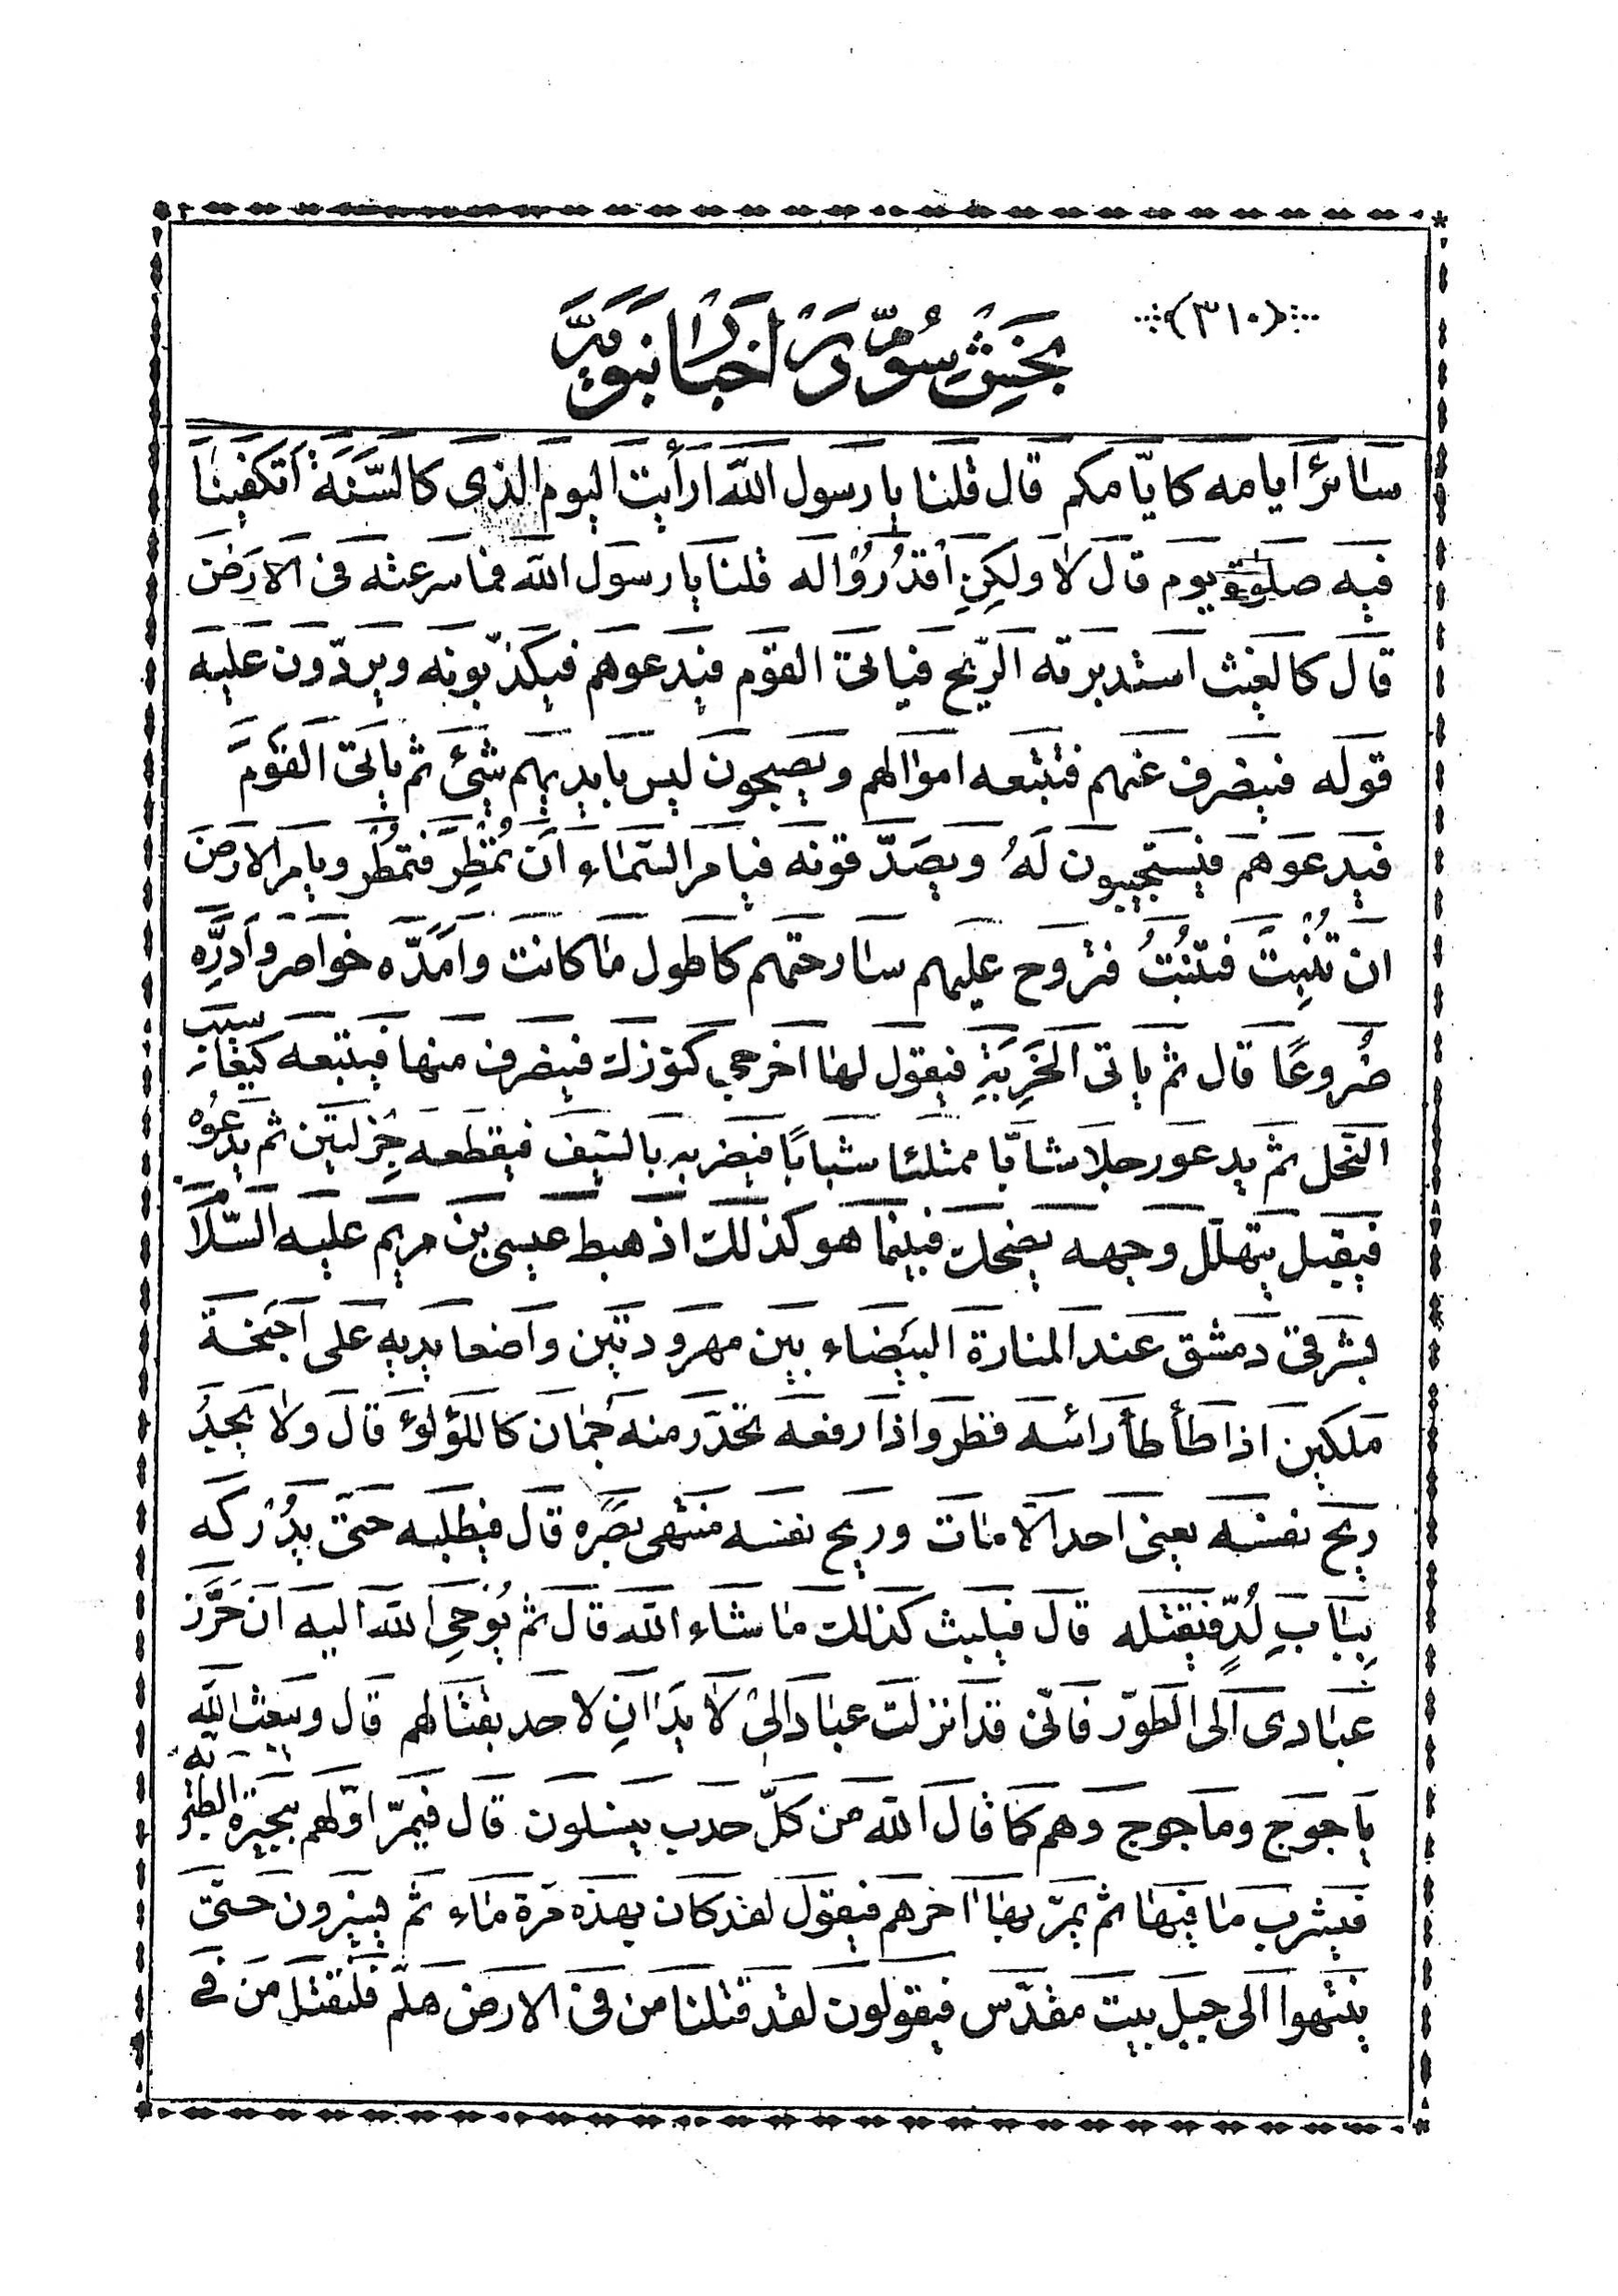 (٣١٠)
بخش سوّم در اخبار نبویّه
سائر ایامه کایّامکم قال قلنا یا رسول الله ارأیت الیوم الذی کالسَّنَة أتکفینا
فیه صلوة یوم قال لا ولکِنِ اُقدُرُوْا له قلنا یا رسول الله فما سرعته فی الارض
قال کالغیث استدبرته الرّیح فیاتی القوم فیدعوهم فیکذّبونه ویردّون علیه
قوله فینصرف عنهم فتتبعه اموالهم ویصبحون لیس بایدیهم شیئ ثم یاتی القوم
فیدعوهم فیستجیبون لَهُ ویصدّقونه فیامر السماء ان تُمْطِرَ فتمطُر ویامر الارض
ان تُنْبِتَ فتنبُتُ فتروح علیهم سارحتهم کاطول ما کانت وامدّه خواصر وادرِّه
ضُروعًا قال ثم یاتی الخَرِبَةِ فیقول لها اخرجی کنوزک فینصرف منها فیتبعه کیعاسیب
النّحل ثم یدعو رجلا شابّا ممتلئا شبابًا فیضربه بالسّیف فیقطعه جِزلتین ثم یدعوُه
فیقبل یتهلّل وجهه یضحک فبینما هو کذلک اذ هبط عیسی بن مریم علیه السّلا
بشرقی دمشق عند المنارة البیضاء بین مهرودتین واضعا یدیه علی اجنحة
ملکین اذا طأطأ رائسه قطر واذا رفعه تحدّر منه جُمان کاللؤلؤ قال ولا یجدُ
ریح نفسه یعنی احد الا مات وریح نفسه منتهی بصره قال فیطلبه حتی یدُرکه
بِبابِ لُدٍّ فیقتله قال فیلبث کذلک ما شاء الله قال ثم یُوحِی الله الیه ان حَرِّز
عبادی الی الطور فانّی قد انزلت عبادا لِیْ لا یدَانِ لاحد بقتالهم قال ویبعث الله
یاجوج وماجوج وهم کما قال الله من کلّ حدب ینسلون قال فیمرّ اوّلهم ببحیرة الطبریّه
فیشرب ما فیها ثم یمرّ بها اخرهم فیقول لقد کان بهذه مرة ماء ثم یسیرون حتّی
ینتهوا الی جبل بیت مقدّس فیقولون لقد قتلنا من فی الارض هلمّ فلنقتل من فی